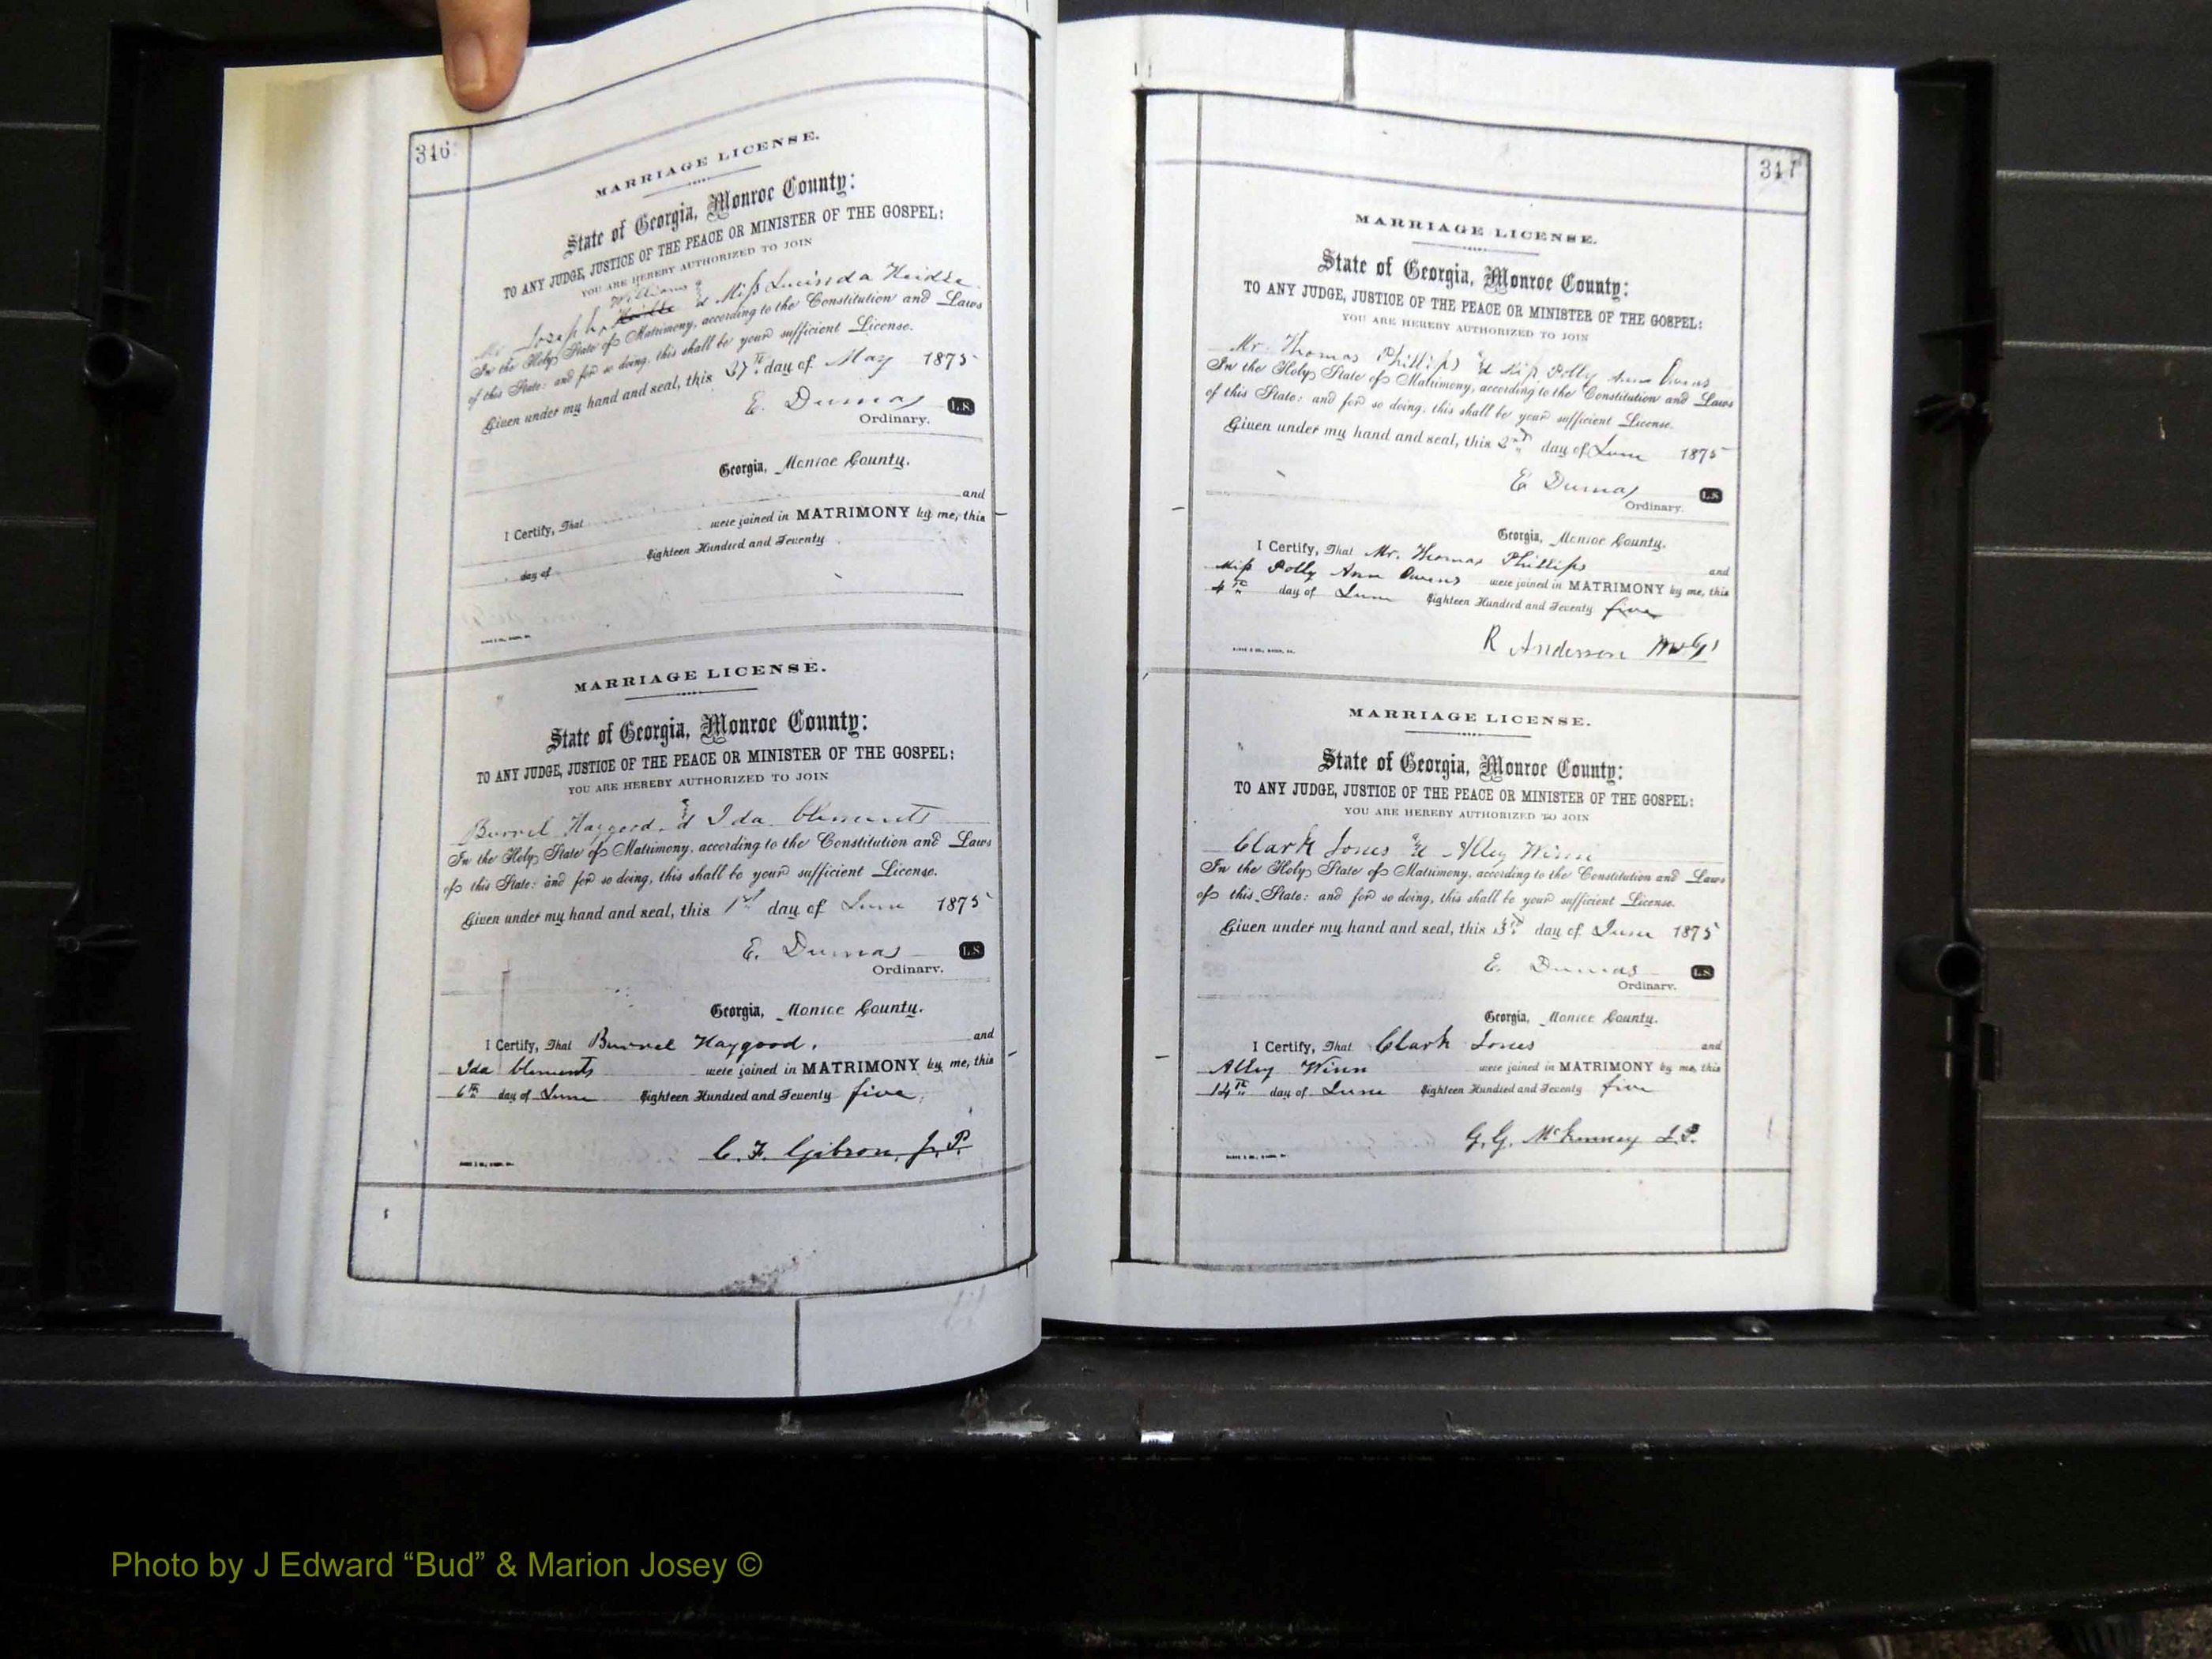 346
MARRIAGE LICENSE.
State of Georgia, Monroe County:
TO ANY JUDGE, JUSTICE OF THE PEACE OR MINISTER OF THE GOSPEL:
YOU ARE HEREBY AUTHORIZED TO JOIN
Williams
Mr Joseph & Miss Lucinda
In the Holy State of Matrimony, according to the Constitution and Laws
of this State: and for so doing, this shall be your sufficient License.
Given under my hand and seal, this 27th day of May 1875
E. Dumas L.S.
Ordinary.
Georgia, Monroe County.
I Certify, That and
were joined in MATRIMONY by me, this
day of Eighteen Hundred and Seventy
MARRIAGE LICENSE.
State of Georgia, Monroe County:
TO ANY JUDGE, JUSTICE OF THE PEACE OR MINISTER OF THE GOSPEL:
YOU ARE HEREBY AUTHORIZED TO JOIN
Burrel Haygood, & Ida Clements
In the Holy State of Matrimony, according to the Constitution and Laws
of this State: and for so doing, this shall be your sufficient License.
Given under my hand and seal, this 1st day of June 1875
E. Dumas L.S.
Ordinary.
Georgia, Monroe County.
I Certify, That Burrel Haygood, and
Ida Clements were joined in MATRIMONY by me, this
6th day of June Eighteen Hundred and Seventy five,
C. F. Gibson, J. P.
347
MARRIAGE LICENSE.
State of Georgia, Monroe County:
TO ANY JUDGE, JUSTICE OF THE PEACE OR MINISTER OF THE GOSPEL:
YOU ARE HEREBY AUTHORIZED TO JOIN
Mr. Thomas Phillips & Miss Polly Ann Owens
In the Holy State of Matrimony, according to the Constitution and Laws
of this State: and for so doing, this shall be your sufficient License.
Given under my hand and seal, this 2nd day of June 1875
E Dumas L.S.
Ordinary.
Georgia, Monroe County.
I Certify, That Mr. Thomas Phillips and
Miss Polly Ann Owens were joined in MATRIMONY by me, this
4th day of June Eighteen Hundred and Seventy five
R Anderson M.G.
MARRIAGE LICENSE.
State of Georgia, Monroe County:
TO ANY JUDGE, JUSTICE OF THE PEACE OR MINISTER OF THE GOSPEL:
YOU ARE HEREBY AUTHORIZED TO JOIN
Clark Jones & Alley Winn
In the Holy State of Matrimony, according to the Constitution and Laws
of this State: and for so doing, this shall be your sufficient License.
Given under my hand and seal, this 3rd day of June 1875
E. Dumas L.S.
Ordinary.
Georgia, Monroe County.
I Certify, That Clark Jones and
Alley Winn were joined in MATRIMONY by me, this
14th day of June Eighteen Hundred and Seventy five
G. G. McKinney J.P.
Photo by J Edward “Bud” & Marion Josey ©